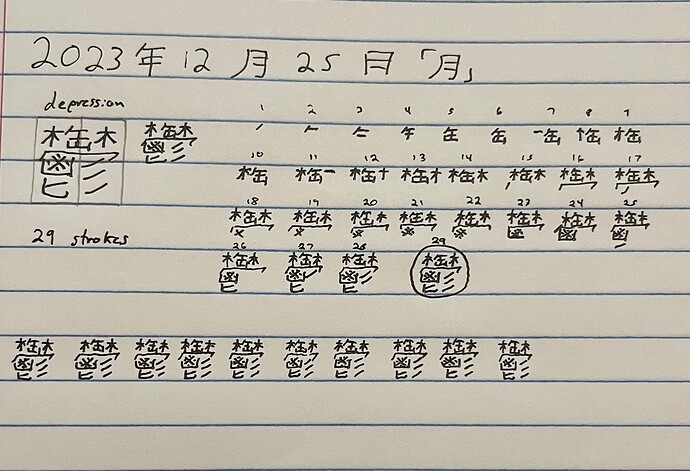 2023年12月25日「月」
depression
1 2 3 4 5 6 7 8 9
鬱 鬱
10 11 12 13 14 15 16 17
18 19 20 21 22 23 24 25
29 strokes
26 27 28 29
鬱
鬱 鬱 鬱 鬱 鬱 鬱 鬱 鬱 鬱 鬱